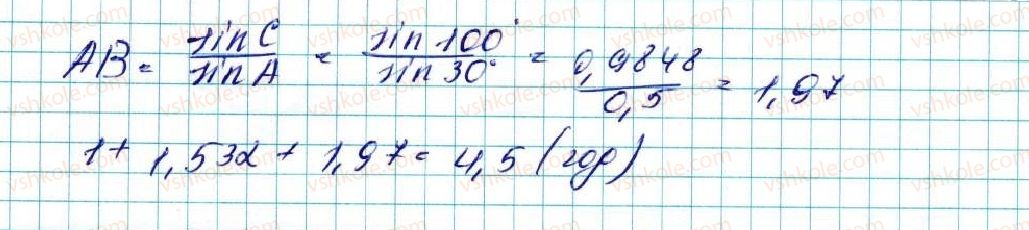 AB = sin C / sin A = sin 100° / sin 30° = 0,9848 / 0,5 = 1,97
1 + 1,532 + 1,97 = 4,5 (год)